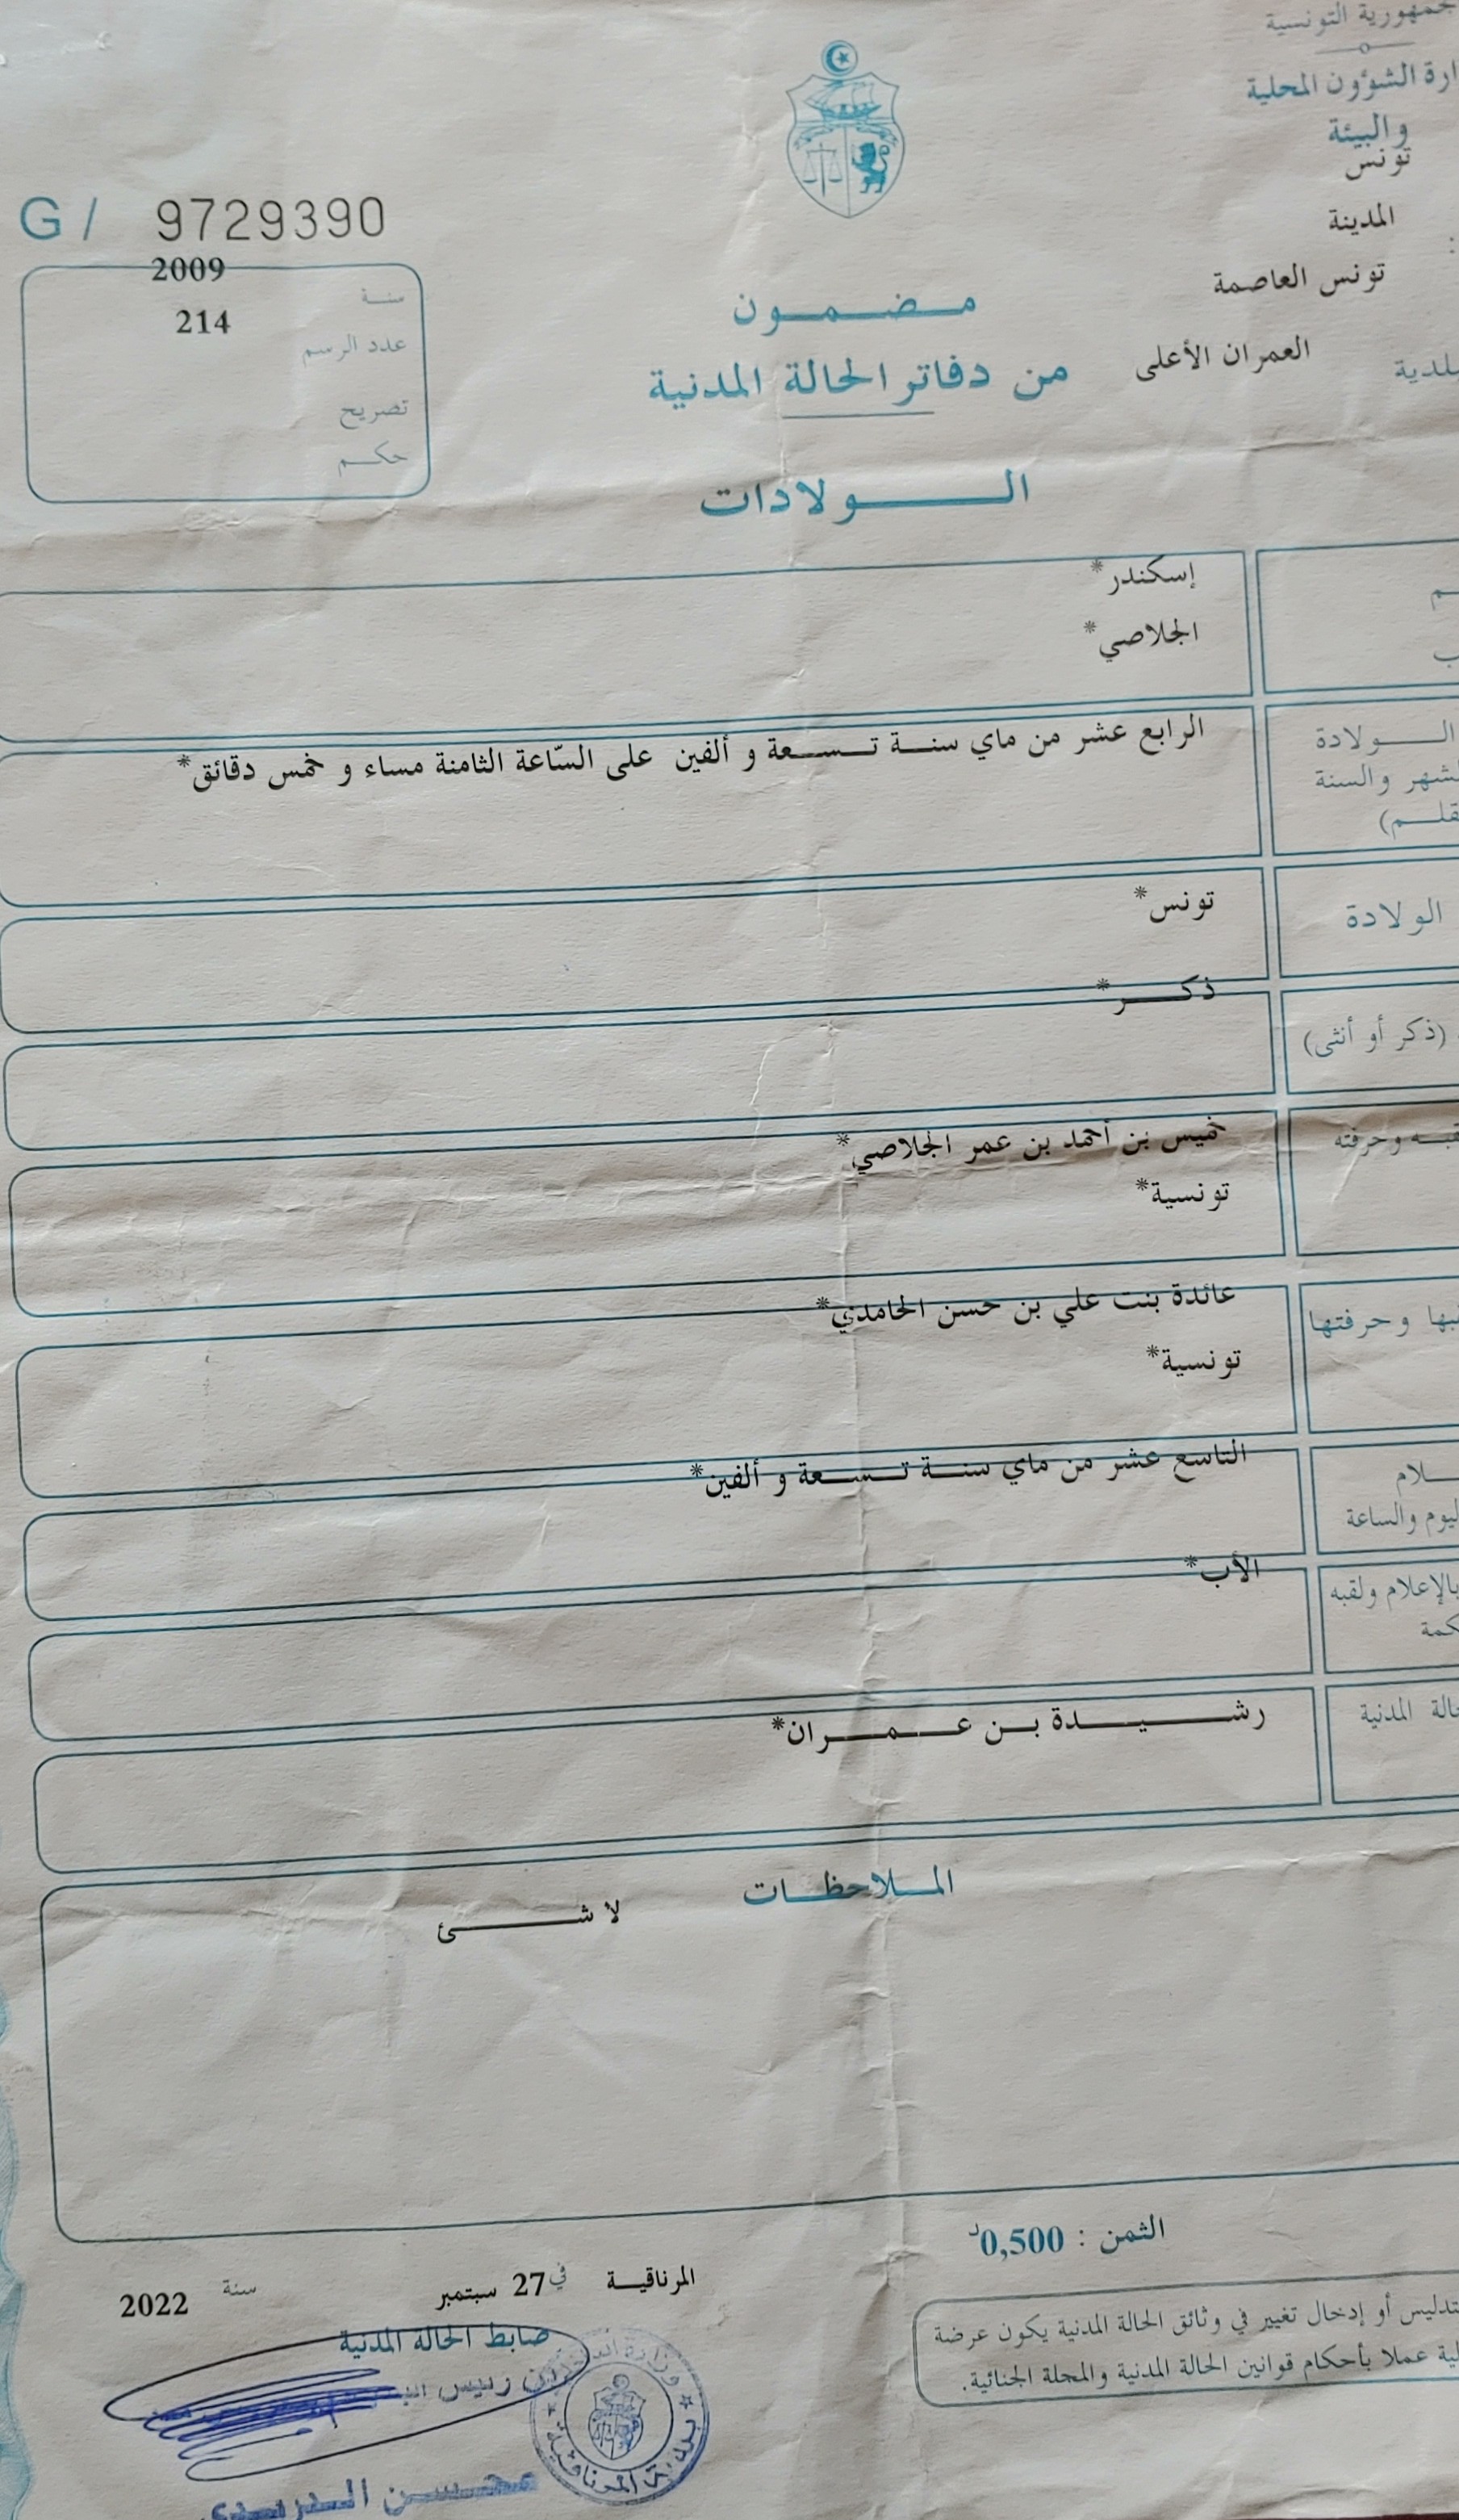 الجمهورية التونسية
وزارة الشؤون المحلية
والبيئة
تونس
المدينة
تونس العاصمة
بلدية العمران الأعلى
G / 9729390
سنة 2009
عدد الرسم 214
تصريح
حكم
مضمون
من دفاتر الحالة المدنية
الولادات
إسكندر*
الجلاصي*
الولادة الرابع عشر من ماي سنة تسعة و ألفين على السّاعة الثامنة مساء و خمس دقائق*
والسنة
الولادة تونس*
(ذكر أو أنثى) ذكر*
وحرفته خميس بن أحمد بن عمر الجلاصي*
تونسية*
وحرفتها عائدة بنت علي بن حسن الحامدي*
تونسية*
التاسع عشر من ماي سنة تسعة و ألفين*
اليوم والساعة
بالإعلام ولقبه الأب*
الحالة المدنية رشيدة بن عمران*
الملاحظات
لا شئ
الثمن : 0,500د
المرناقية في 27 سبتمبر سنة 2022
ضابط الحالة المدنية
تدليس أو إدخال تغيير في وثائق الحالة المدنية يكون عرضة
عملا بأحكام قوانين الحالة المدنية والمجلة الجنائية.
بلدية المرناقية
محسن الدريدي